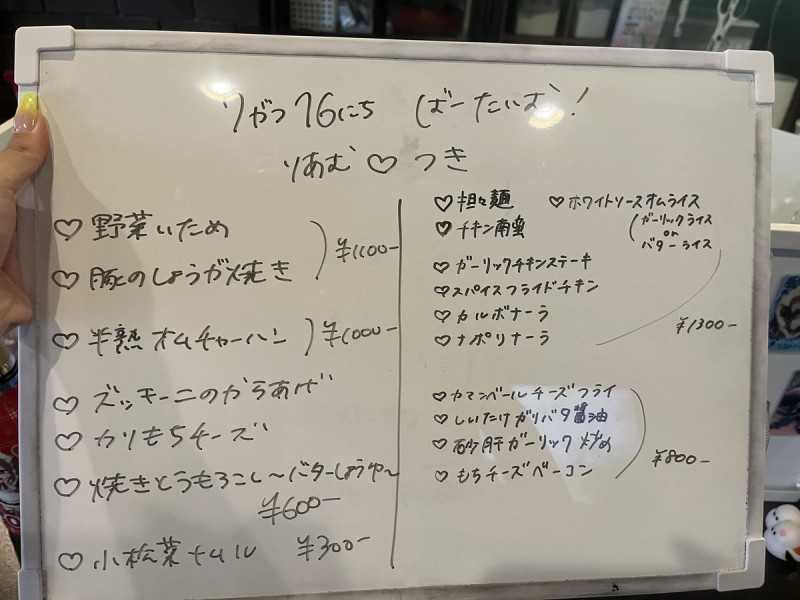 7がつ16にち ばーたいむ!
りあむ♡つき
♡野菜いため
♡豚のしょうが焼き
¥1100-
♡半熟オムチャーハン
¥1000-
♡ズッキーニのからあげ
♡カリもちチーズ
♡焼きとうもろこし〜バターしょうゆ〜
¥600-
♡小松菜ナムル ¥300-
♡担々麺
♡チキン南蛮
♡ホワイトソースオムライス
(ガーリックライス
or
バターライス
♡ガーリックチキンステーキ
♡スパイスフライドチキン
♡カルボナーラ
♡ナポリナーラ
¥1300-
♡カマンベールチーズフライ
♡しいたけガリバタ醤油
♡砂肝ガーリック炒め
♡もちチーズベーコン
¥800-